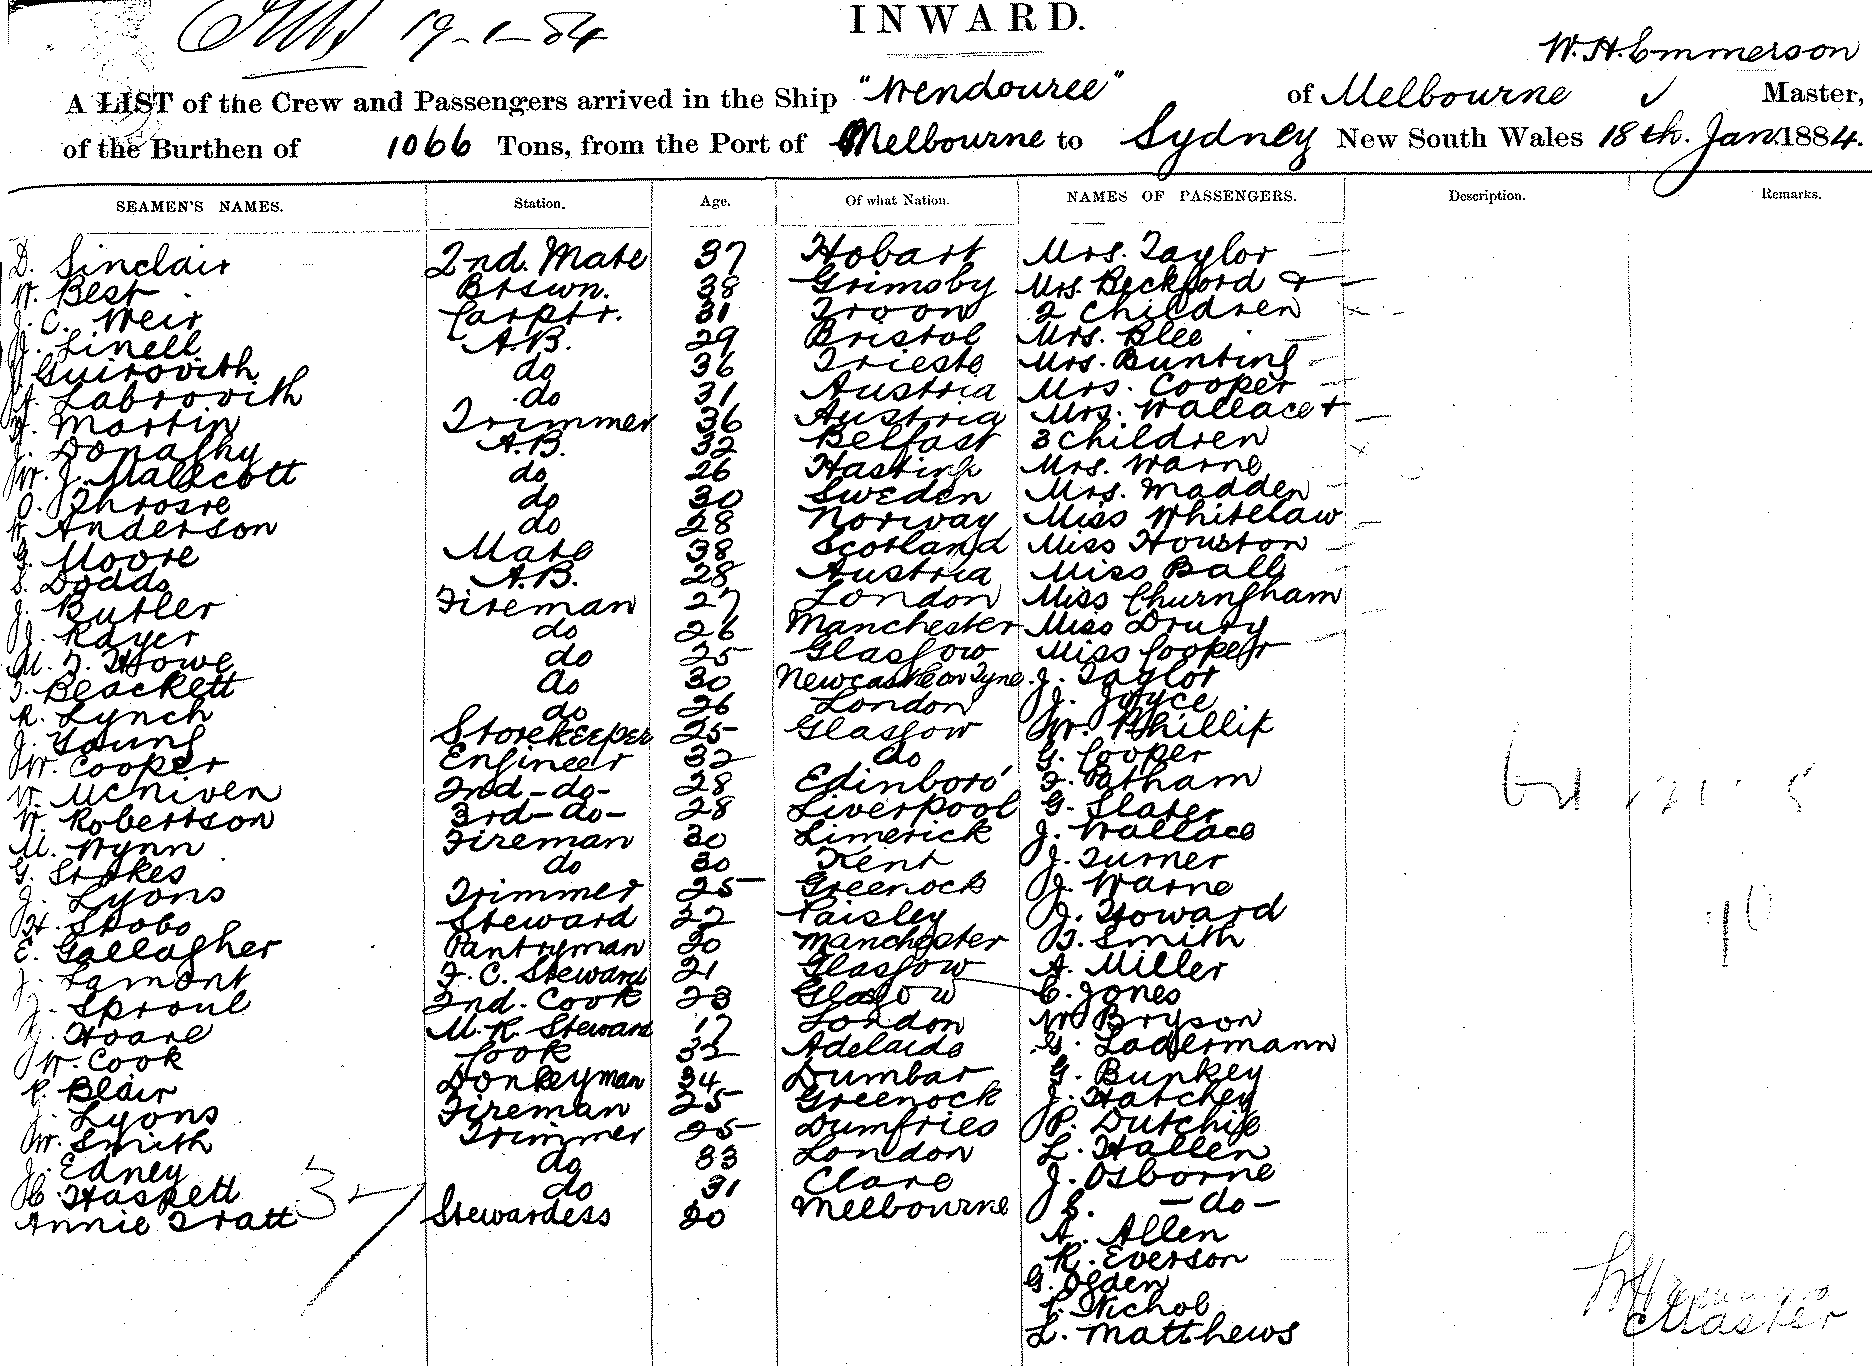 19-1-84
INWARD.
W. H. Emmerson
A LIST of the Crew and Passengers arrived in the Ship "Wendouree" of Melbourne Master,
of the Burthen of 1066 Tons, from the Port of Melbourne to Sydney New South Wales 18th. Jan. 1884.
SEAMEN'S NAMES. Station. Age. Of what Nation. NAMES OF PASSENGERS. Description. Remarks.
D. Sinclair 2nd. Mate 37 Hobart Mrs. Taylor
W. Best Btswn. 38 Grimsby Mrs. Beckford &
J. C. Weir Carptr. 31 Troon 2 Children
J. Linell A.B. 29 Bristol Mrs. Blee
Guirovith do 36 Trieste Mrs. Bunting
Labrovith do 31 Austria Mrs. Cooper
Martin Trimmer 36 Austria Mrs. Wallace &
J. Donaghy A.B. 32 Belfast 3 Children
W. J. Mallscott do 26 Hastings Mrs. Warne
O. Throsre do 30 Sweden Mrs. Madden
Anderson do 28 Norway Miss Whitelaw
G. Moore Mate 38 Scotland Miss Houston
S. Dodds A.B. 28 Austria Miss Ball
J. Butler Fireman 27 London Miss Churngham
J. Rayer do 26 Manchester Miss Drury
M. J. Howe do 25 Glasgow Miss Cooper
T. Beackett do 30 Newcastle on Tyne J. Taylor
R. Lynch do 26 London J. Joyce
J. Young Storekeeper 25 Glasgow W. Phillip
W. Cooper Engineer 32 do G. Cooper
W. McNiven 2nd -do- 28 Edinboro' Latham
W. Robertson 3rd -do- 28 Liverpool G. Slater
M. Wynn Fireman 30 Limerick J. Wallace
G. Stokes do 30 Kent J. Turner
J. Lyons Trimmer 25 Greenock J. Warne
H. Stobo Steward 22 Paisley J. Howard
E. Gallagher Pantryman 20 Manchester Smith
J. Lamont F. C. Steward 21 Glasgow A. Miller
J. Sproul 2nd. Cook 23 Glasgow C. Jones
Hoare M. R. Steward 17 London W. Bryson
W. Cook Cook 32 Adelaide G. Ladermann
R. Blair Donkeyman 34 Dumbar G. Bunkey
J. Lyons Fireman 25 Greenock J. Hatchey
W. Smith Trimmer 25 Dumfries P. Dutchie
J. Edney do 33 London L. Hallen
H. Haskett do 31 Clare J. Osborne
Annie Tratt Stewardess 20 Melbourne S. -do-
A. Allen
R. Everson
G. Ogden
Nichol
L. Matthews
Master